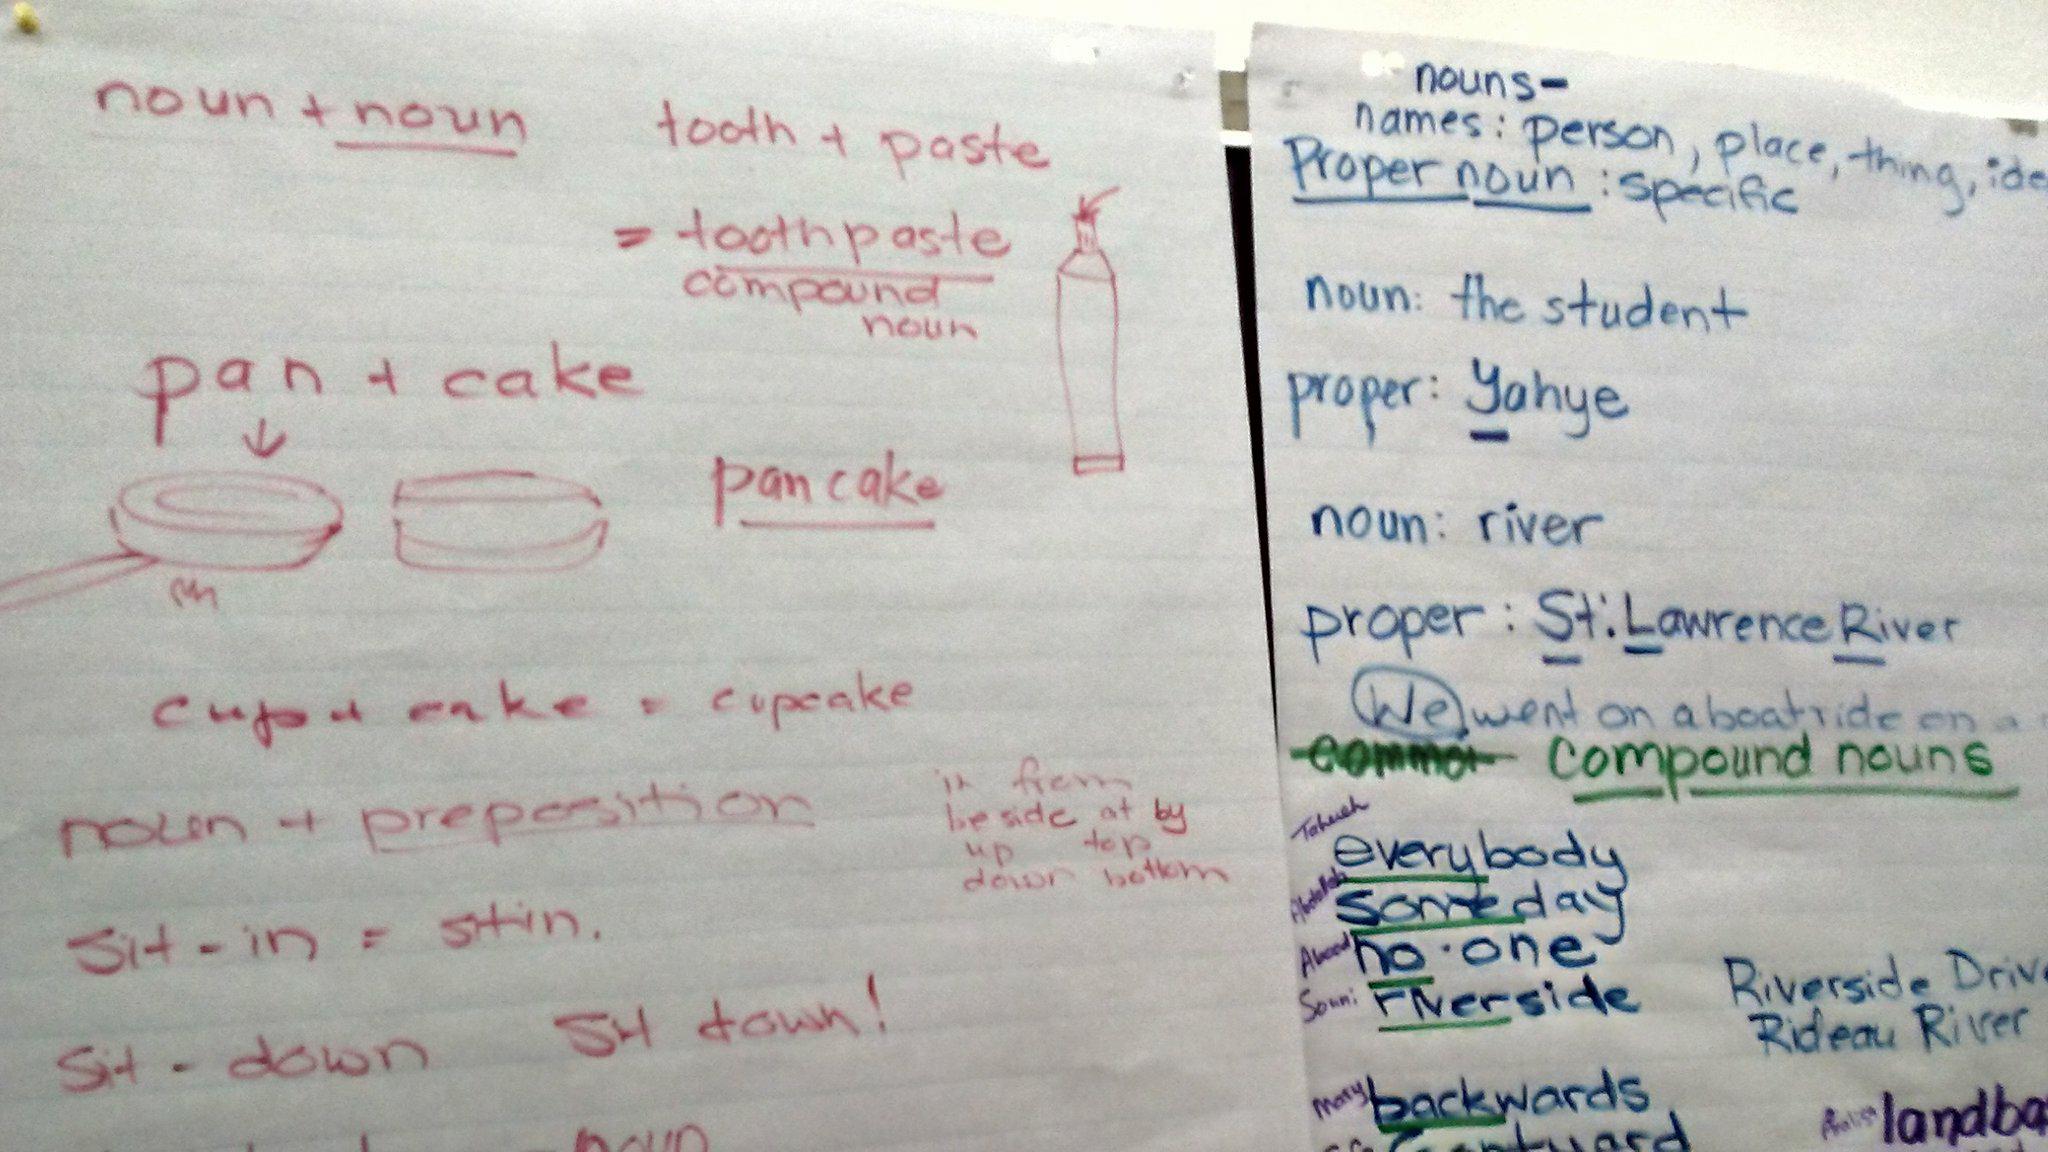 noun + noun
tooth + paste
= toothpaste
compound
noun
pan + cake
pancake
cup + cake = cupcake
noun + preposition
in from
beside at by
up top
down bottom
sit - in = sitin.
sit - down sit down!
noun
nouns-
names: person, place, thing, ide
Proper noun : specific
noun: the student
proper: Yahye
noun: river
proper : St. Lawrence River
We went on a boat ride on a
compound nouns
everybody
someday
no-one
riverside
Riverside Driv
Rideau River
Mary backwards
landba